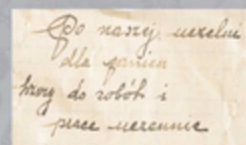 Do naszej uczelni
dla panien
do robót i
prace uczennic